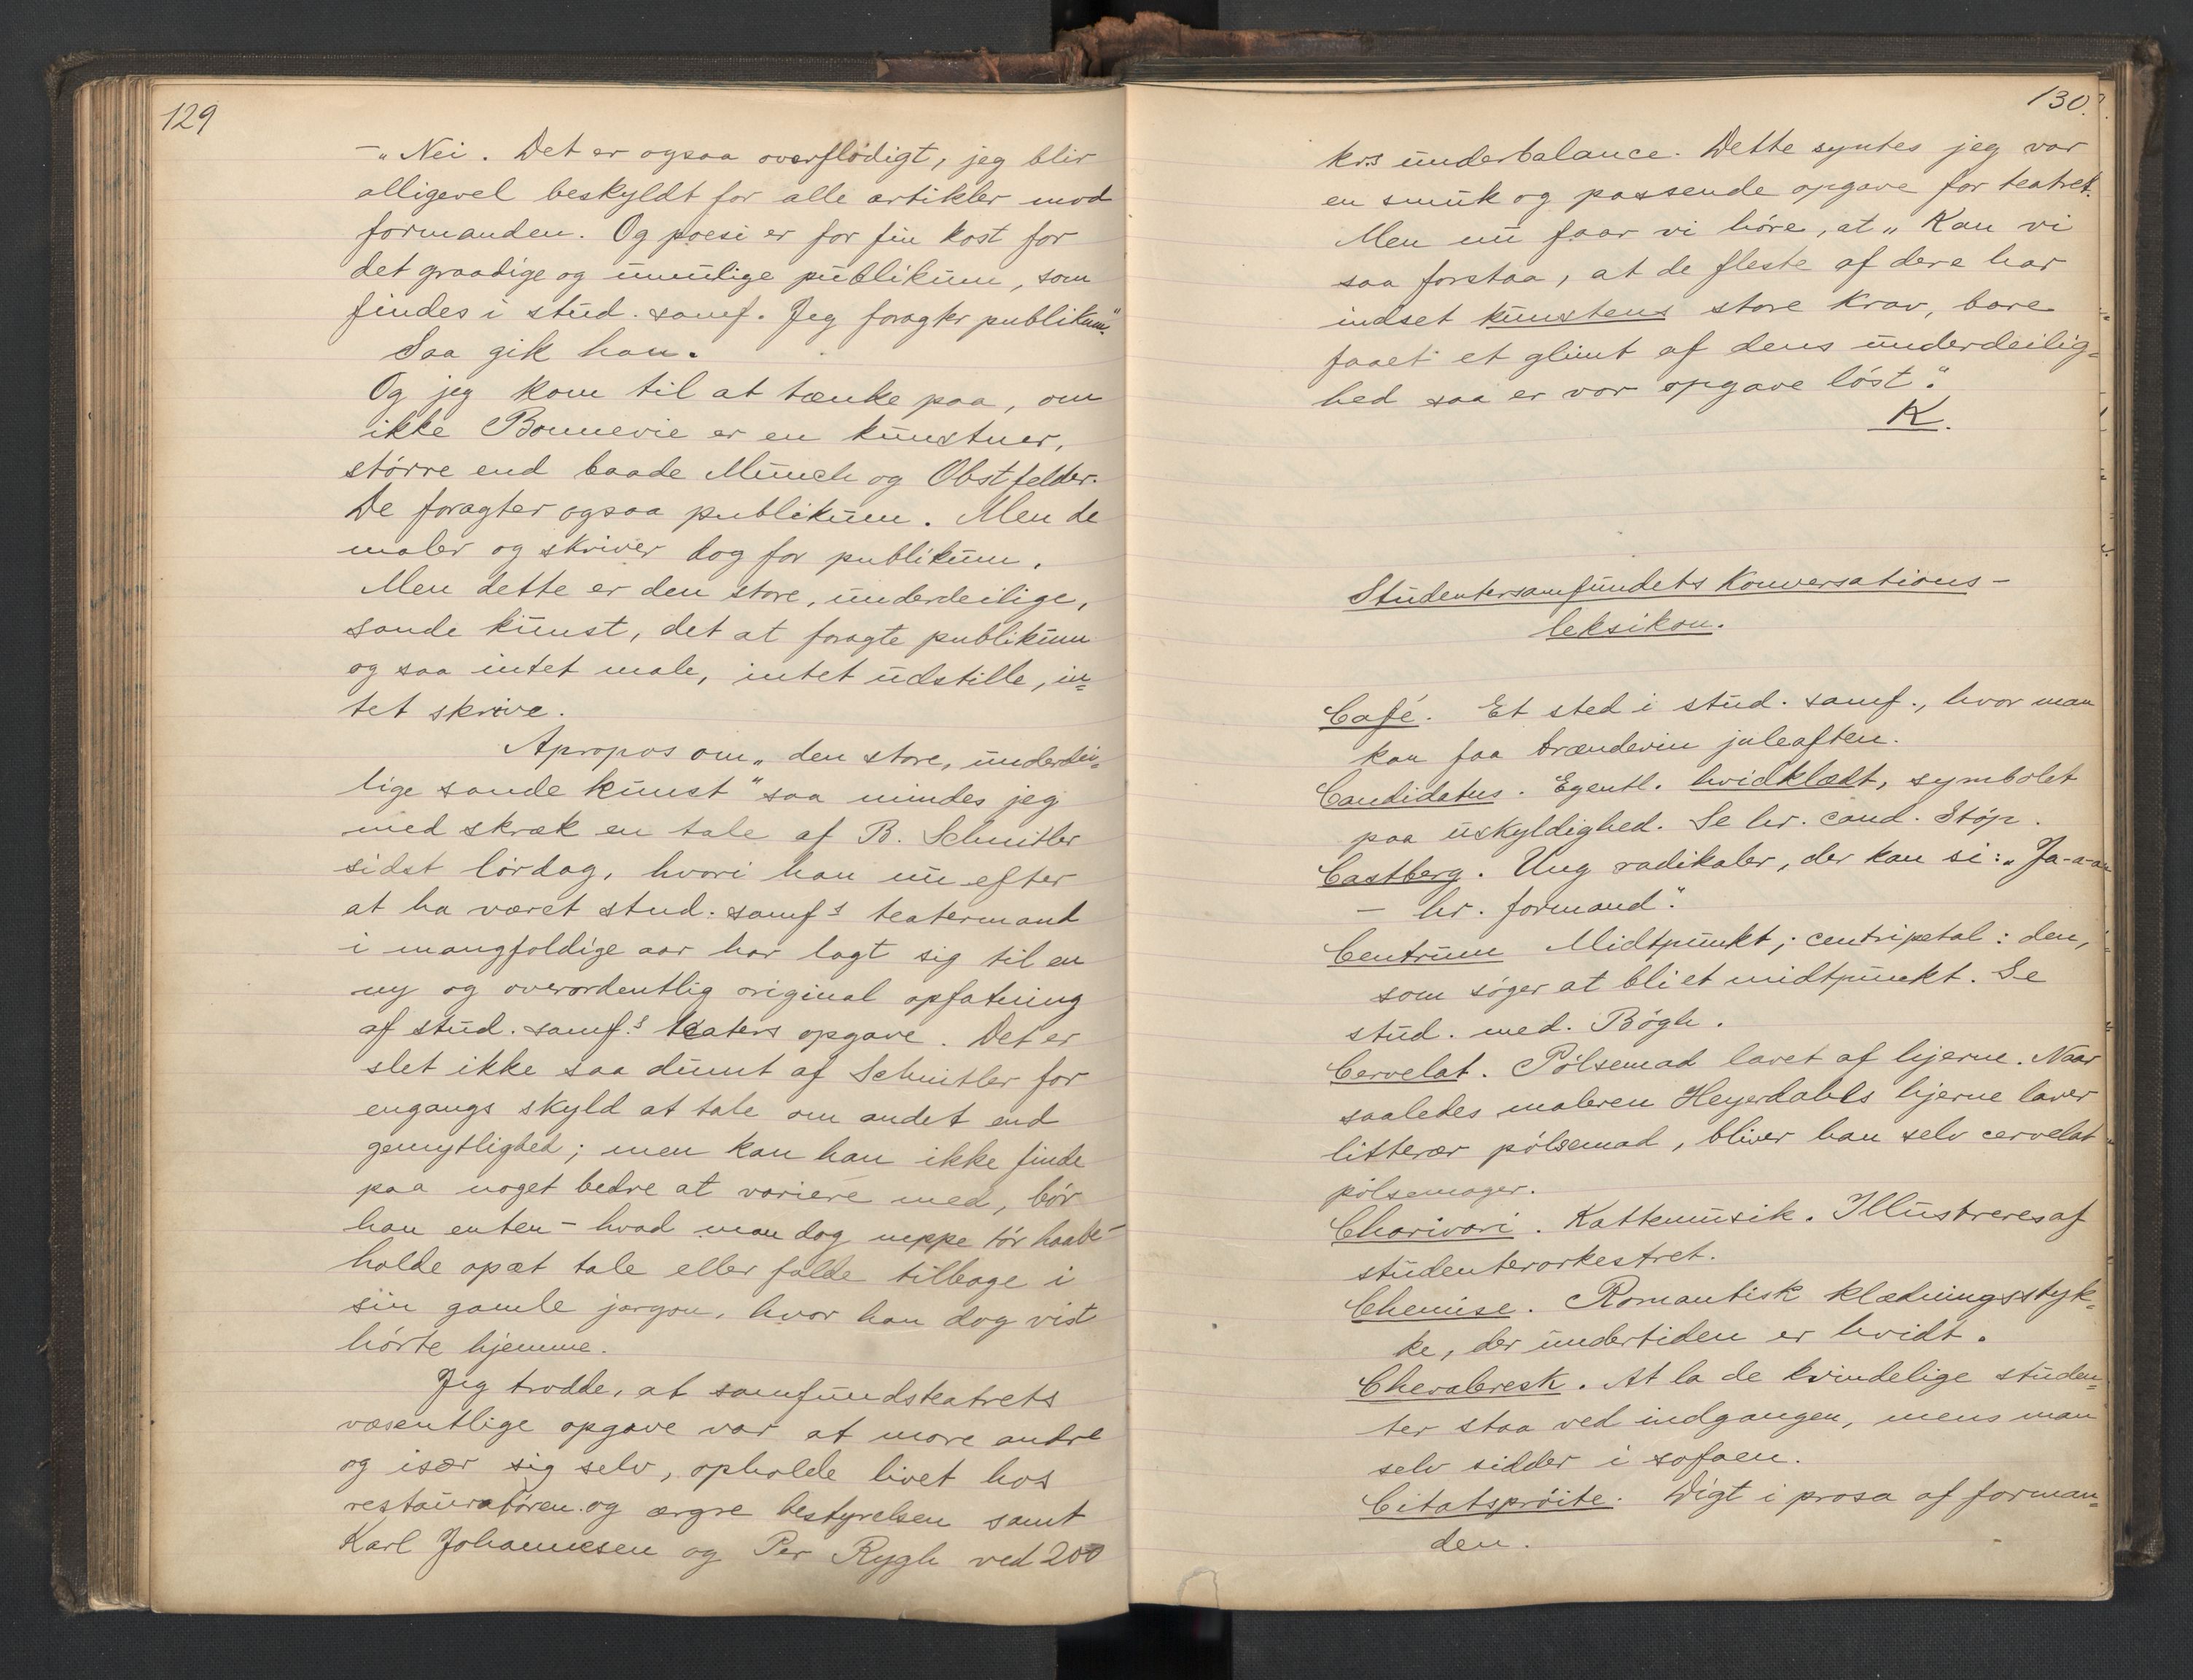 129
– „Nei. Det er ogsaa overflødigt, jeg blir
alligevel beskyldt for alle artikler mod
formanden. Og poesi er for fin kost for
det graadige og umulige publikum, som
findes i stud. samf. Jeg foragter publikum."
Saa gik han.
Og jeg kom til at tænke paa, om
ikke Bonnevie er en kunstner,
større end baade Munch og Obstfelder.
De foragter ogsaa publikum. Men de
maler og skriver dog for publikum.
Men dette er den store, underdeilige,
sande kunst, det at foragte publikum
og saa intet male, intet udstille, in=
tet skrive.
Apropos om „den store, underdei=
lige sande kunst" saa mindes jeg
med skræk en tale af B. Schnitler
sidst lørdag, hvori han nu efter
at ha været stud. samfs teatermand
i mangfoldige aar har lagt sig til en
ny og overordentlig original opfatning
af stud. samf.s teaters opgave. Det er
slet ikke saa dumt af Schnitler for
engangs skyld at tale om andet end
gemytlighed; men kan han ikke finde
paa noget bedre at variere med, bør
han enten – hvad man dog neppe tør haabe –
holde opat tale eller falde tilbage i
sin gamle jargon, hvor han dog vist
hørte hjemme.
Jeg trodde, at samfundsteatrets
væsentlige opgave var at more andre
og især sig selv, opholde livet hos
restauratøren og ærgre bestyrelsen samt
Karl Johannesen og Per Rygh ved 200
130.
krs underbalance. Dette syntes jeg var
en smuk og passende opgave for teatret.
Men nu faar vi høre, at „Kan vi
saa forstaa, at de fleste af dere har
indset kunstens store krav, bare
faaet et glimt af dens underdeilig=
hed saa er vor opgave løst."
K.
Studentersamfundets Konversations-
leksikon.
Café. Et sted i stud. samf., hvor man
kan faa brændevin juleaften.
Candidatus. Egentl. hvidklædt, symbolet
paa uskyldighed. Se hr. cand. Støp.
Castberg. Ung radikaler, der kan si: „Ja-a-a
– hr. formand".
Centrum Midtpunkt; centripetal: den,
som søger at bli et midtpunkt. Se
stud. med. Bøgh.
Cervelat. Pølsemad lavet af hjerne. Naar
saaledes maleren Heyerdahls hjerne laver
litterær pølsemad, bliver han selv cervelat
pølsemager.
Charivari. Kattemusik. Illustreres af
studenterorkestret.
Chemise. Romantisk klædningsstyk=
ke, der undertiden er hvidt.
Chevaleresk. At la de kvindelige studen=
ter staa ved indgangen, mens man
selv sidder i sofaen.
Citatsprøite. Digt i prosa af forman=
den.